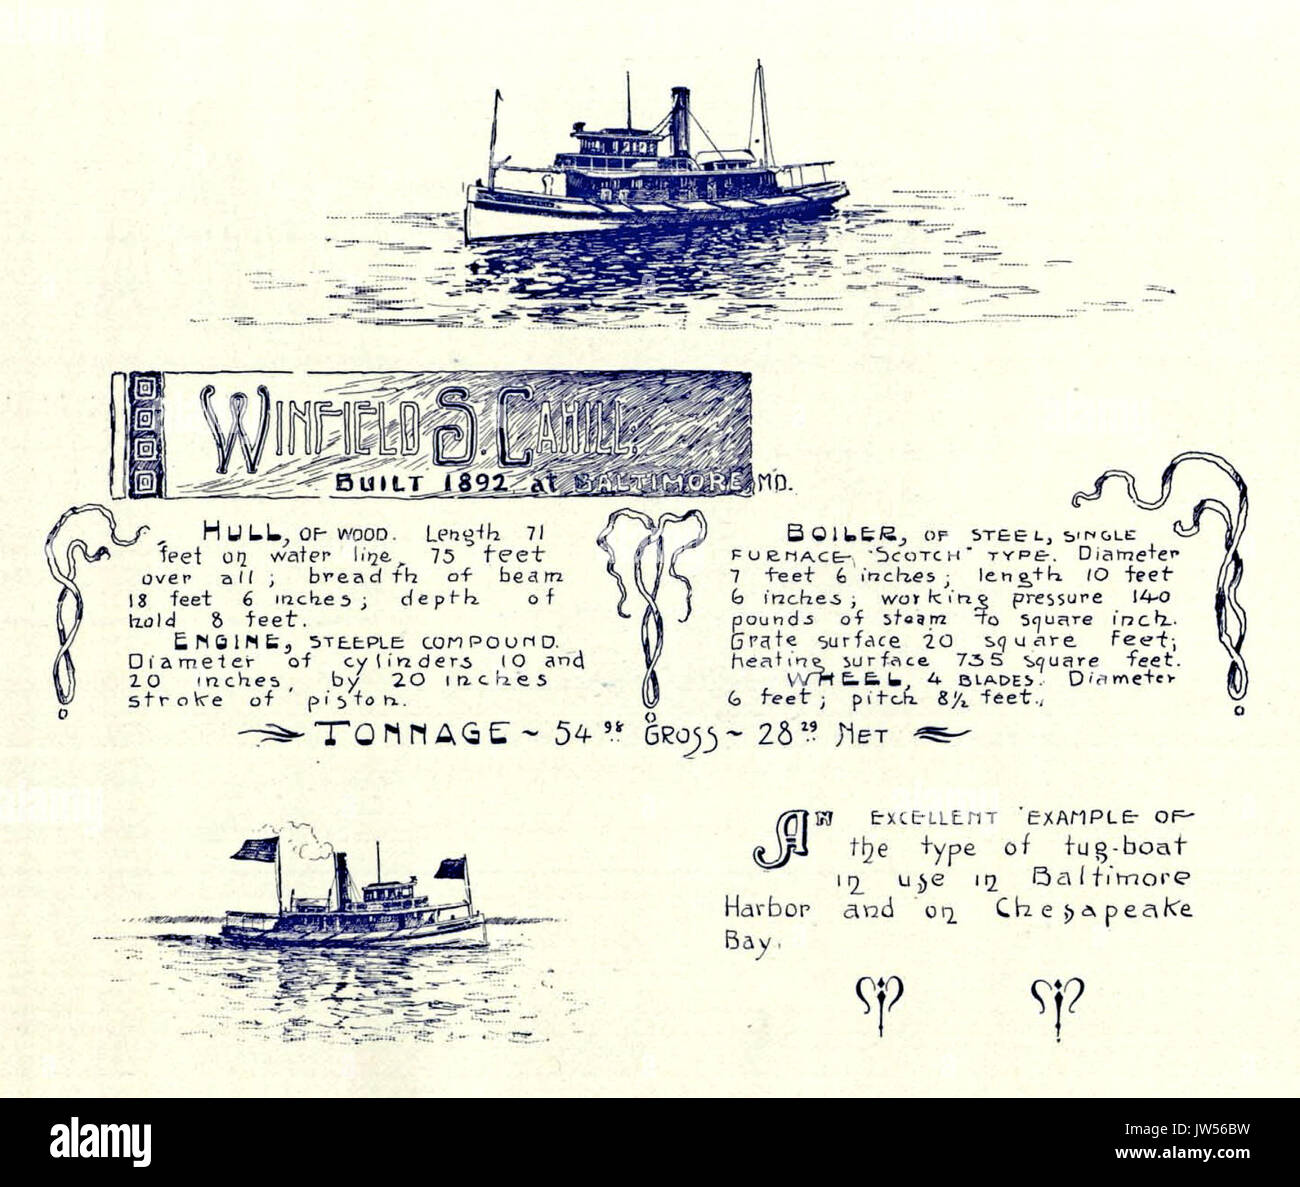 WINFIELD S. CAHILL;
BUILT 1892, at BALTIMORE, MD.
HULL, OF WOOD. Length 71
feet on water line, 75 feet
over all; breadth of beam
18 feet 6 inches; depth of
hold 8 feet.
ENGINE, STEEPLE COMPOUND.
Diameter of cylinders 10 and
20 inches, by 20 inches
stroke of piston.
BOILER, OF STEEL, SINGLE
FURNACE, "SCOTCH" TYPE. Diameter
7 feet 6 inches; length 10 feet
6 inches; working pressure 140
pounds of steam to square inch.
Grate surface 20 square feet;
heating surface 735 square feet.
WHEEL, 4 BLADES. Diameter
6 feet; pitch 8½ feet.
TONNAGE ~ 54 98 GROSS ~ 28 29 NET
AN EXCELLENT EXAMPLE OF
the type of tug-boat
in use in Baltimore
Harbor and on Chesapeake
Bay.
alamy stock photo
JW56BW
www.alamy.com